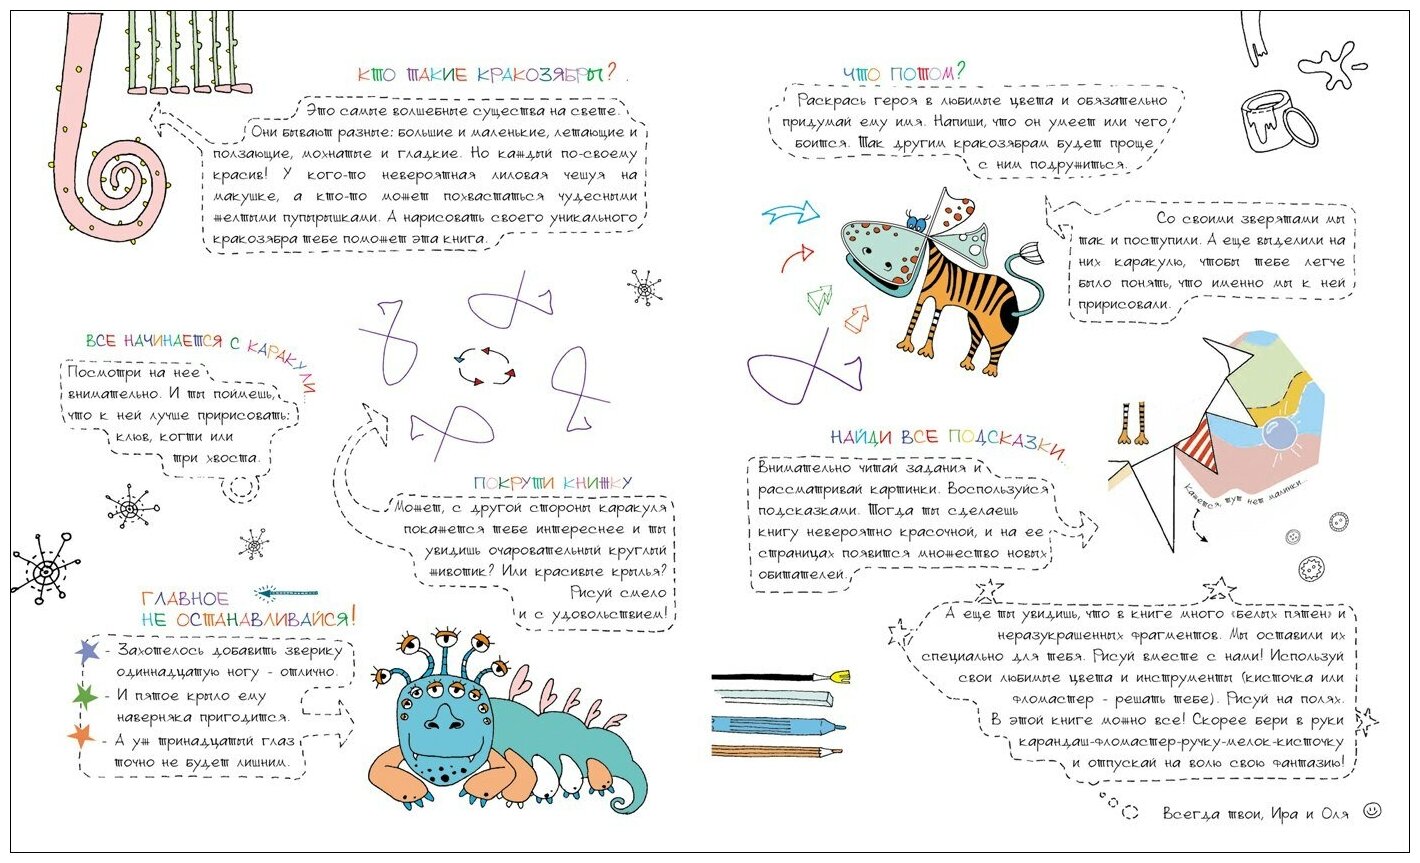 КТО ТАКИЕ КРАКОЗЯБРЫ?
Это самые волшебные существа на свете.
Они бывают разные: большие и маленькие, летающие и
ползающие, мохнатые и гладкие. Но каждый по-своему
красив! У кого-то невероятная лиловая чешуя на
макушке, а кто-то может похвастаться чудесными
желтыми пупырышками. А нарисовать своего уникального
кракозябра тебе поможет эта книга.
ВСЕ НАЧИНАЕТСЯ С КАРАКУЛИ
Посмотри на нее
внимательно. И ты поймешь,
что к ней лучше пририсовать:
клюв, когти или
три хвоста.
ПОКРУТИ КНИЖКУ
Может, с другой стороны каракуля
покажется тебе интереснее и ты
увидишь очаровательный круглый
животик? Или красивые крылья?
Рисуй смело
и с удовольствием!
ГЛАВНОЕ
НЕ ОСТАНАВЛИВАЙСЯ!
- Захотелось добавить зверику
одиннадцатую ногу - отлично.
- И пятое крыло ему
наверняка пригодится.
- А уж тринадцатый глаз
точно не будет лишним.
ЧТО ПОТОМ?
Раскрась героя в любимые цвета и обязательно
придумай ему имя. Напиши, что он умеет или чего
боится. Так другим кракозябрам будет проще
с ним подружиться.
Со своими зверятами мы
так и поступили. А еще выделили на
них каракулю, чтобы тебе легче
было понять, что именно мы к ней
пририсовали.
НАЙДИ ВСЕ ПОДСКАЗКИ...
Внимательно читай задания и
рассматривай картинки. Воспользуйся
подсказками. Тогда ты сделаешь
книгу невероятно красочной, и на ее
страницах появится множество новых
обитателей.
Кажется, тут нет малинки...
А еще ты увидишь, что в книге много (белых пятен) и
неразукрашенных фрагментов. Мы оставили их
специально для тебя. Рисуй вместе с нами! Используй
свои любимые цвета и инструменты (кисточка или
фломастер - решать тебе). Рисуй на полях.
В этой книге можно все! Скорее бери в руки
карандаш-фломастер-ручку-мелок-кисточку
и отпускай на волю свою фантазию!
Всегда твои, Ира и Оля